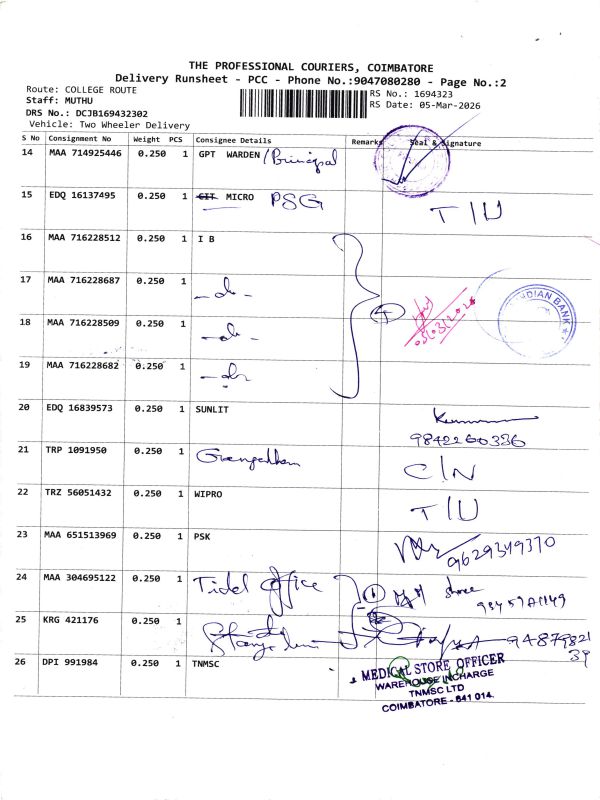 THE PROFESSIONAL COURIERS, COIMBATORE
Delivery Runsheet - PCC - Phone No.:9047080280 - Page No.:2
Route: COLLEGE ROUTE
RS No.: 1694323
Staff: MUTHU
RS Date: 05-Mar-2026
DRS No.: DCJB169432302
Vehicle: Two Wheeler Delivery
S No Consignment No Weight PCS Consignee Details Remarks Seal & Signature
14 MAA 714925446 0.250 1 GPT WARDEN /Principal
15 EDQ 16137495 0.250 1 GIT MICRO PSG T/U
16 MAA 716228512 0.250 1 I B
17 MAA 716228687 0.250 1 -do-
4
05/03/2026
DIAN BANK
18 MAA 716228509 0.250 1 -do-
19 MAA 716228682 0.250 1 -do-
20 EDQ 16839573 0.250 1 SUNLIT
9842260336
21 TRP 1091950 0.250 1 C/N
22 TRZ 56051432 0.250 1 WIPRO T/U
23 MAA 651513969 0.250 1 PSK 9629349370
24 MAA 304695122 0.250 1 Tidel office 1
25 KRG 421176 0.250 1 9487982139
26 DPI 991984 0.250 1 TNMSC
MEDICAL STORE OFFICER
WAREHOUSE INCHARGE
TNMSC LTD
COIMBATORE - 641 014.